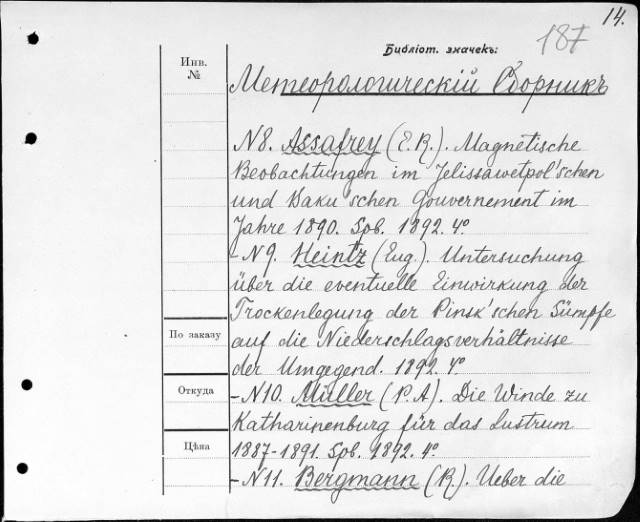 14.
187
Библiот. значекъ:
Инв.
№
Метеорологическiй Сборникъ
N8. Assafrey (E.R.). Magnetische
Beobachtungen im Jelissawetpol'schen
und Baku'schen Gouvernement im
Jahre 1890. Spb. 1892. 4°
- N9. Heintz (Eug.). Untersuchung
über die eventuelle Einwirkung der
Trockenlegung der Pinsk'schen Sümpfe
По заказу
auf die Niederschlagsverhältnisse
der Umgegend. 1892. 4°
Откуда
- N10. Müller (P.A). Die Winde zu
Katharinenburg für das Lustrum
Цѣна
1887-1891. Spb. 1892. 4°.
- N11. Bergmann (R.). Ueber die